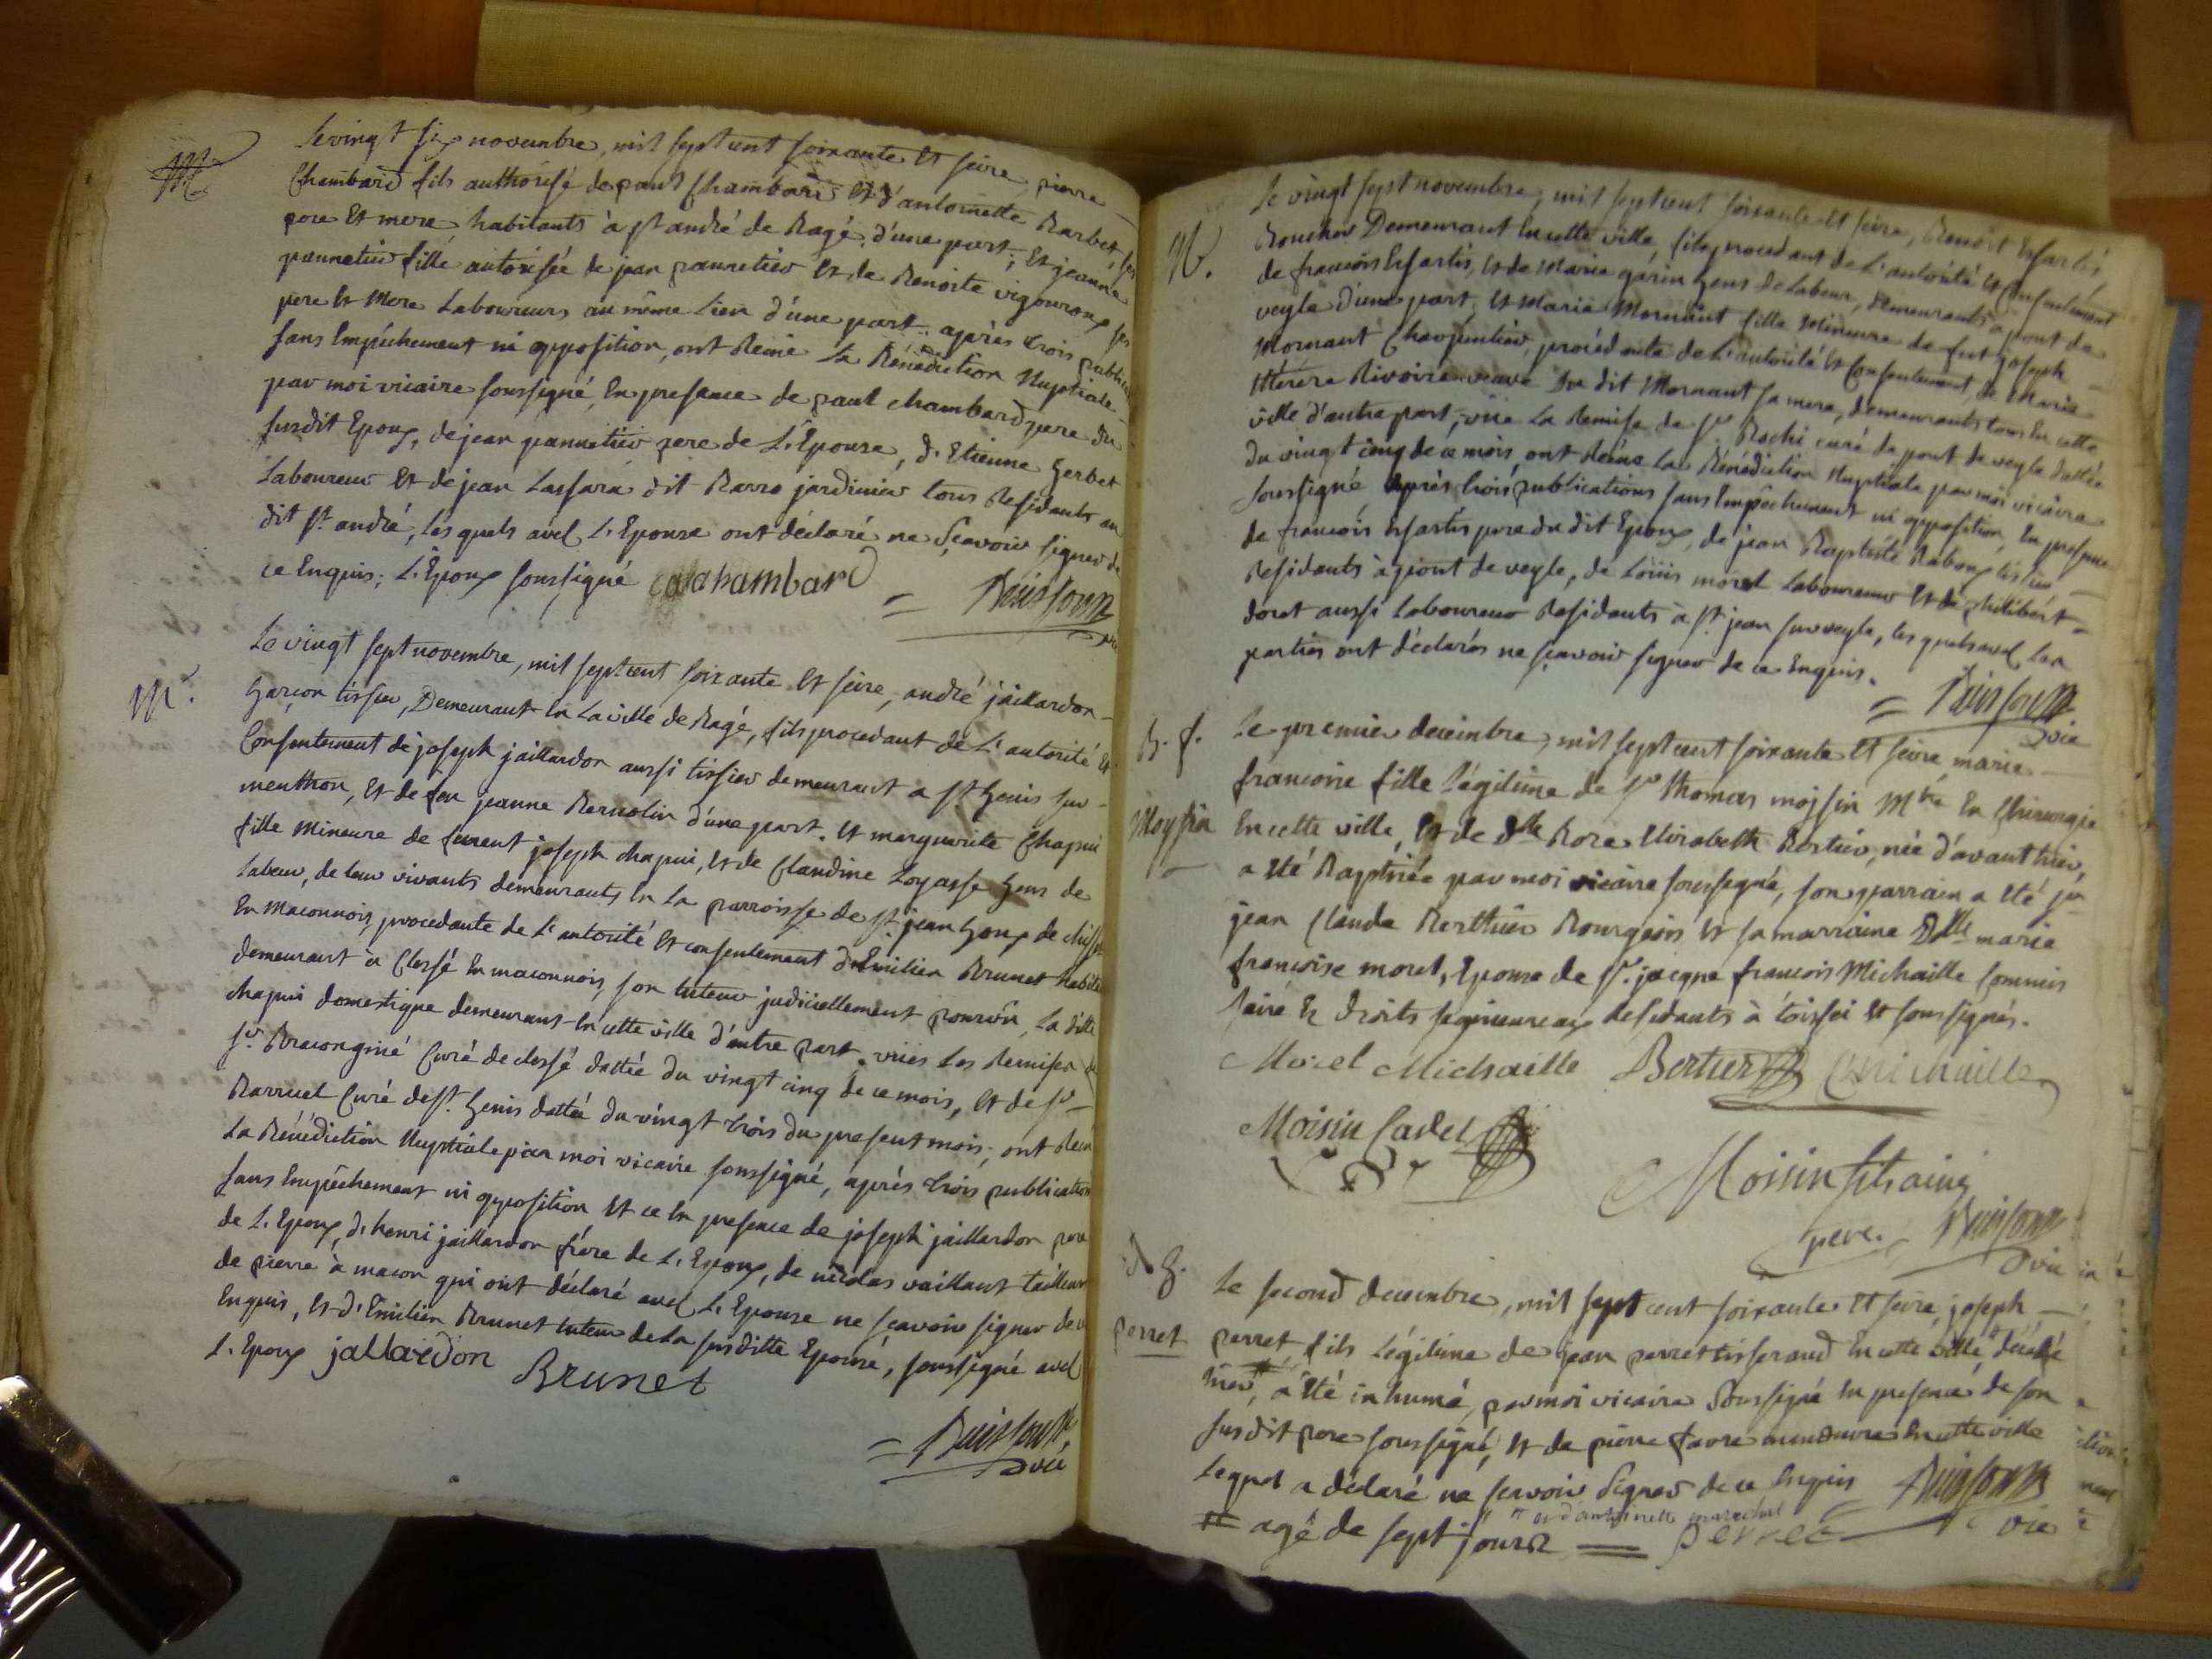 M.
Le vingt six novembre, mil sept cent soixante et seize, pierre
Chambard fils authorisé de paul Chambard et d'antoinette Barbet, ses
pere et mere habitants à st andré de Bagé, d'une part; et jeanne
pannetier fille autorisée de jean pannetier et de Benoite vigouroux ses
pere et mere Laboureurs au même Lieu d'une part. après trois public
sans Empêchement ni opposition, ont Reçue La Bénédiction Nuptiale
par moi vicaire soussigné, en presence de paul chambard pere du
susdit Epoux, de jean pannetier pere de L'Epouse, d'Etienne gerbet
Laboureur et de jean Lassara dit Barro jardinier tous Residants au
dit st. andré, les quels avec L'Epouse ont déclaré ne sçavoir signer de
ce Enquis; L'Epoux soussigné chambard
= Buisson
vic
M.
Le vingt sept novembre, mil sept cent soixante et seize, andré jaillardon
Garçon tissier, Demeurant en La ville de Bagé, fils procedant de L'autorité et
Consentement de joseph jaillardon aussi tissier demeurant a st Genis sur
menthon, et de feu jeanne Bernolin d'une part. et marguerite Chapui
fille Mineure de furent joseph chapui, et de Claudine Loyasse Gens de
Labeur, de leur vivants demeurants en La parroisse de st. jean
En maconnois, procedante de L'autorité et consentement d'Emilien Brunet
demeurant à Clessé en maconnois, son tuteur judiciellement pourvû, La ditte
chapui domestique demeurant en cette ville d'autre part. vües les Remises de
sr. Curé de clessé dattée du vingt cinq de ce mois, et de sr
Barruel Curé de st. Genis dattée du vingt trois du present mois; ont Reçu
La Bénédiction Nuptiale par moi vicaire soussigné, après trois publication
sans Empêchement ni opposition et ce en presence de joseph jaillardon pere
de L'Epoux, d'henri jaillardon frére de L'Epoux, de nicolas vaillant tailleur
de pierre à macon qui ont déclaré avec L'Epouse ne sçavoir signer de ce
Enquis, et d'Emilien Brunet tuteur de La susditte Epouse, soussigné avec
L'Epoux jallardon Brunet
= Buisson
vic
M.
Le vingt sept novembre, mil sept cent soixante et seize, Benoit Essartis
Boucher Demeurant en cette ville, fils procedant de L'autorité et Consentement
de francois Essartis, et de Marie garin Gens de Labeur, demeurants à pont de
veyle d'une part, et Marie Mornant fille Mineure de fut joseph
Mornant Charpentier, procédante de L'autorité et Consentement, de Marie
therese Rivoire veuve du dit Mornant sa mere, demeurants tous En cette
ville d'autre part, vüe La Remise de sr. Rochi curé de pont de veyle dattée
du vingt cinq de ce mois, ont Reçue La Bénédiction Nuptiale par moi vicaire
soussigné après trois publications sans Empêchement ni opposition, En presence
de francois Essartis pere du dit Epoux, de jean Baptiste Raboux tissier
Residants à pont de veyle, de Loüis morel Laboureur et de philibert
doret aussi Laboureur Residants à st. jean sur veyle, les quels avec les
parties ont déclarés ne sçavoir signer de ce Enquis.
= Buisson
vic
B. f.
Moyssin
Le premier décembre, mil sept cent soixante et seize, marie
francoise fille Légitime de sr thomas moyssin Mtre en Chirurgie
En cette ville, et de Dlle Rose Elisabeth Bertier, née d'avant hier,
a été Baptisée par moi vicaire soussigné, son parrain a été sr
jean Claude Berthier Bourgeois et sa marraine Dlle marie
francoise morel, Epouse de sr. jacque francois Michaille Commis
saire Es droits seigneureaux Residants à toissei et soussignés.
Morel Michaille Bertier Michaille
Moisin Cadet
Moisin fils ainé
pere. Buisson
vic
g.
perret
Le second decembre, mil sept cent soixante et seize, joseph
perret, fils Légitime de jean perret tisserand En cette ville, décédé
hier, a été inhumé, par moi vicaire soussigné En presence de son
susdit pere soussigné, et de pierre favre manœuvre En cette ville
Lequel a déclaré ne scavoir signer de ce Enquis Buisson
vic
agé de sept jours et d'antoinette marechal
perret